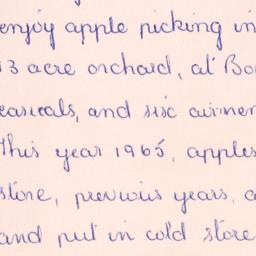 enjoy apple picking in
13 acre orchard, at Bo
easicals, and six airmen
This year 1965, apples
store, previous years, a
and put in cold store